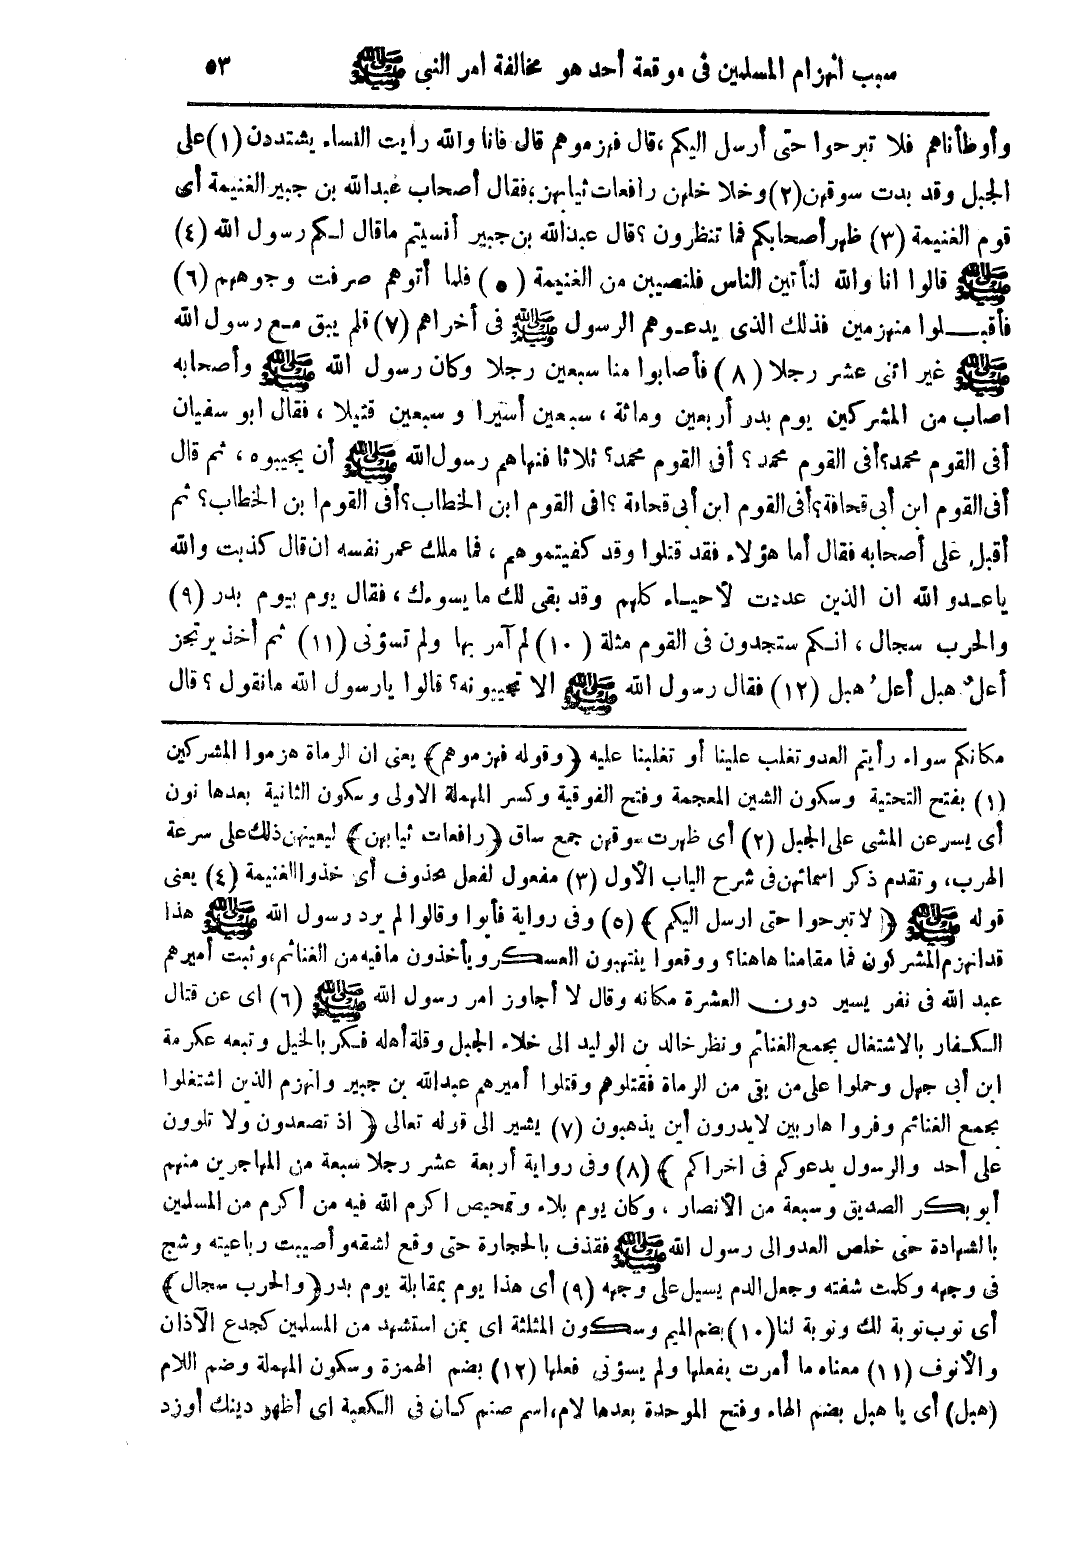 سبب أنهزام المسلمين فى موقعة أحد هو مخالفة امر النبى ﷺ ٥٣
وأوطأناهم فلا تبرحوا حتى أرسل اليكم ،قال فهزموهم قال فانا والله رأيت النساء يشتددن (١) على
الجبل وقد بدت سوقهن (٢) وخلا خلهن رافعات ثيابهن ،فقال أصحاب عبدالله بن جبير الغنيمة أى
قوم الغنيمة (٣) ظهر أصحابكم فما تنظرون ؟ قال عبدالله بن جبير أنسيتم ماقال لكم رسول الله (٤)
ﷺ قالوا انا والله لنأتين الناس فلنصيبن من الغنيمة (٥) فلما أتوهم صرفت وجوههم (٦)
فأقبــلوا منهزمين فذلك الذى يدعوهم الرسول ﷺ فى أخراهم (٧) فلم يبق مع رسول الله
ﷺ غير اثنى عشر رجلا (٨) فأصابوا منا سبعين رجلا وكان رسول الله ﷺ وأصحابه
اصاب من المشركين يوم بدر أربعين ومائة ، سبعين أسيرا وسبعين قتيلا ، فقال ابو سفيان
أفى القوم محمد؟ أفى القوم محمد ؟ أفى القوم محمد؟ ثلاثا فنهاهم رسول الله ﷺ أن يجيبوه ، ثم قال
أفى القوم ابن أبى قحافة؟ أفى القوم ابن أبى قحافة ؟ افى القوم ابن الخطاب؟ أفى القوم ابن الخطاب؟ ثم
أقبل على أصحابه فقال أما هؤلاء فقد قتلوا وقد كفيتموهم ، فما ملك عمر نفسه ان قال كذبت والله
ياعــدو الله ان الذين عددت لأحيــاء كلهم وقد بقى لك ما يسوءك ، فقال يوم بيوم بدر (٩)
والحرب سجال ، انــكم ستجدون فى القوم مثلة (١٠) لم آمر بها ولم تسؤنى (١١) ثم أخذ يرتجز
أعلُ هبل أعلُ هبل (١٢) فقال رسول الله ﷺ الا تجيبونه؟ قالوا يارسول الله مانقول ؟ قال
مكانكم سواء رأيتم العدو تغلب علينا أو تغلبنا عليه ﴿وقوله فهزموهم﴾ يعنى ان الرماة هزموا المشركين
(١) بفتح التحتية وسكون الشين المعجمة وفتح الفوقية وكسر المهملة الاولى وسكون الثانية بعدها نون
أى يسرعن المشى على الجبل (٢) أى ظهرت سوقهن جمع ساق ﴿رافعات ثيابهن﴾ ليعينهن ذلك على سرعة
الهرب، وتقدم ذكر اسمائهن فى شرح الباب الأول (٣) مفعول لفعل محذوف أى خذوا الغنيمة (٤) يعنى
قوله ﷺ ﴿لا تبرحوا حتى ارسل اليكم﴾ (٥) وفى رواية فأبوا وقالوا لم يرد رسول الله ﷺ هذا
قد انهزم المشركون فما مقامنا هاهنا؟ ووقعوا ينتهبون العسكر ويأخذون مافيه من الغنائم، وثبت أميرهم
عبد الله فى نفر يسير دون العشرة مكانه وقال لا أجاوز امر رسول الله ﷺ (٦) اى عن قتال
الكفار بالاشتغال بجمع الغنائم ونظر خالد بن الوليد الى خلاء الجبل وقلة أهله فكر بالخيل وتبعه عكرمة
ابن أبى جهل وحملوا على من بقى من الرماة فقتلوهم وقتلوا أميرهم عبدالله بن جبير وانهزم الذين اشتغلوا
بجمع الغنائم وفروا هاربين لايدرون أين يذهبون (٧) يشير الى قوله تعالى ﴿اذ تصعدون ولا تلوون
على أحد والرسول يدعوكم فى اخراكم﴾ (٨) وفى رواية أربعة عشر رجلا سبعة من المهاجرين منهم
أبو بكر الصديق وسبعة من الأنصار ، وكان يوم بلاء وتمحيص اكرم الله فيه من أكرم من المسلمين
بالشهادة حتى خلص العدو الى رسول الله ﷺ فقذف بالحجارة حتى وقع لشقه وأصيبت رباعيته وشج
فى وجهه وكلمت شفته وجعل الدم يسيل على وجهه (٩) أى هذا يوم بمقابلة يوم بدر ﴿والحرب سجال﴾
أى نوب نوبة لك ونوبة لنا (١٠) بضم الميم وسكون المثلثة اى بمن استشهد من المسلمين كجدع الآذان
والأنوف (١١) معناه ما أمرت بفعلها ولم يسؤنى فعلها (١٢) بضم الهمزة وسكون المهملة وضم اللام
(هبل) أى يا هبل بضم الهاء وفتح الموحدة بعدها لام،اسم صنم كان فى الكعبة اى أظهر دينك أوزد